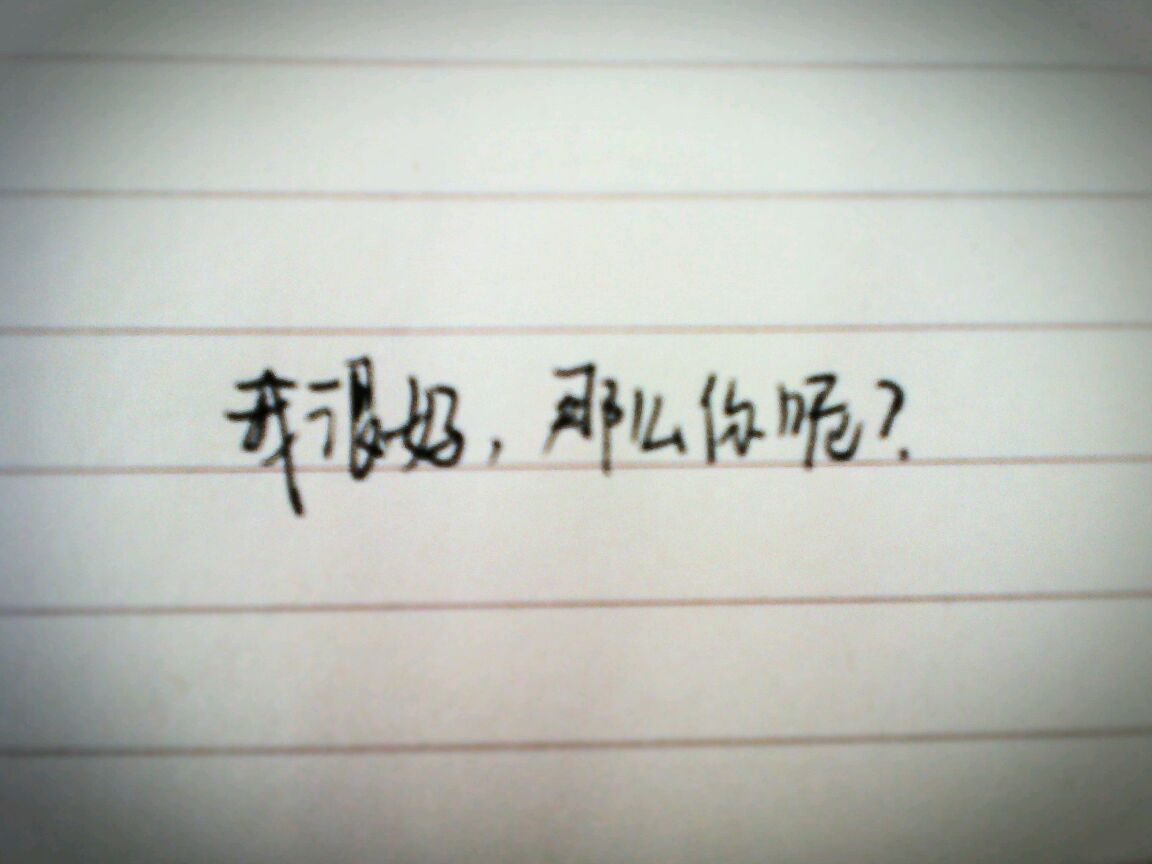 我很好，那么你呢？